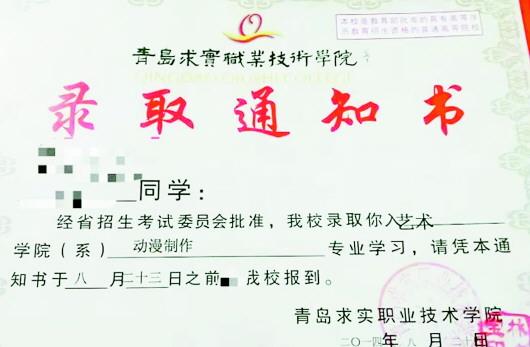 本校是教育部批准的具有高等学
历教育招生资格的普通高等院校
青島求實職業技術學院
QINGDAO QIUSHI COLLEGE
录取通知书
同学：
经省招生考试委员会批准，我校录取你入艺术
学院（系）动漫制作专业学习，请凭本通
知书于八月二十三日之前 我校报到。
青岛求实职业技术学院
二〇一四年八月二十日